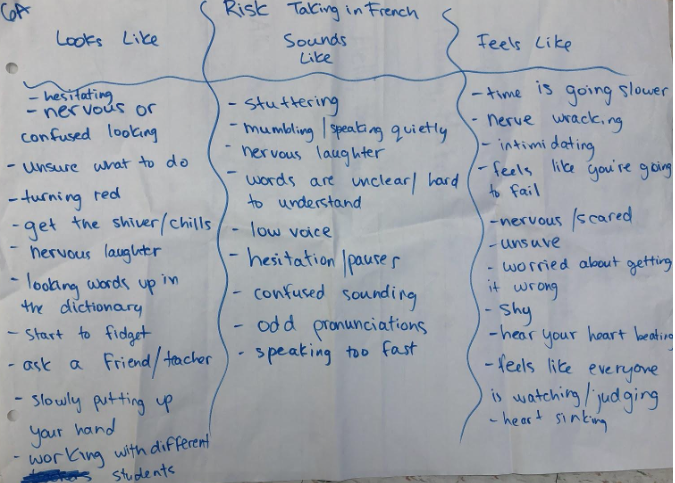 6A
Risk Taking in French
Looks Like
- hesitating
- nervous or
confused looking
- unsure what to do
- turning red
- get the shiver/chills
- nervous laughter
- looking words up in
the dictionary
- start to fidget
- ask a friend/teacher
- slowly putting up
your hand
- working with different
students
Sounds
Like
- stuttering
- mumbling/speaking quietly
- nervous laughter
- words are unclear/hard
to understand
- low voice
- hesitation/pauses
- confused sounding
- odd pronunciations
- speaking too fast
Feels Like
- time is going slower
- nerve wracking
- intimidating
- feels like you're going
to fail
- nervous/scared
- unsure
- worried about getting
it wrong
- shy
- hear your heart beating
- feels like everyone
is watching/judging
- heart sinking